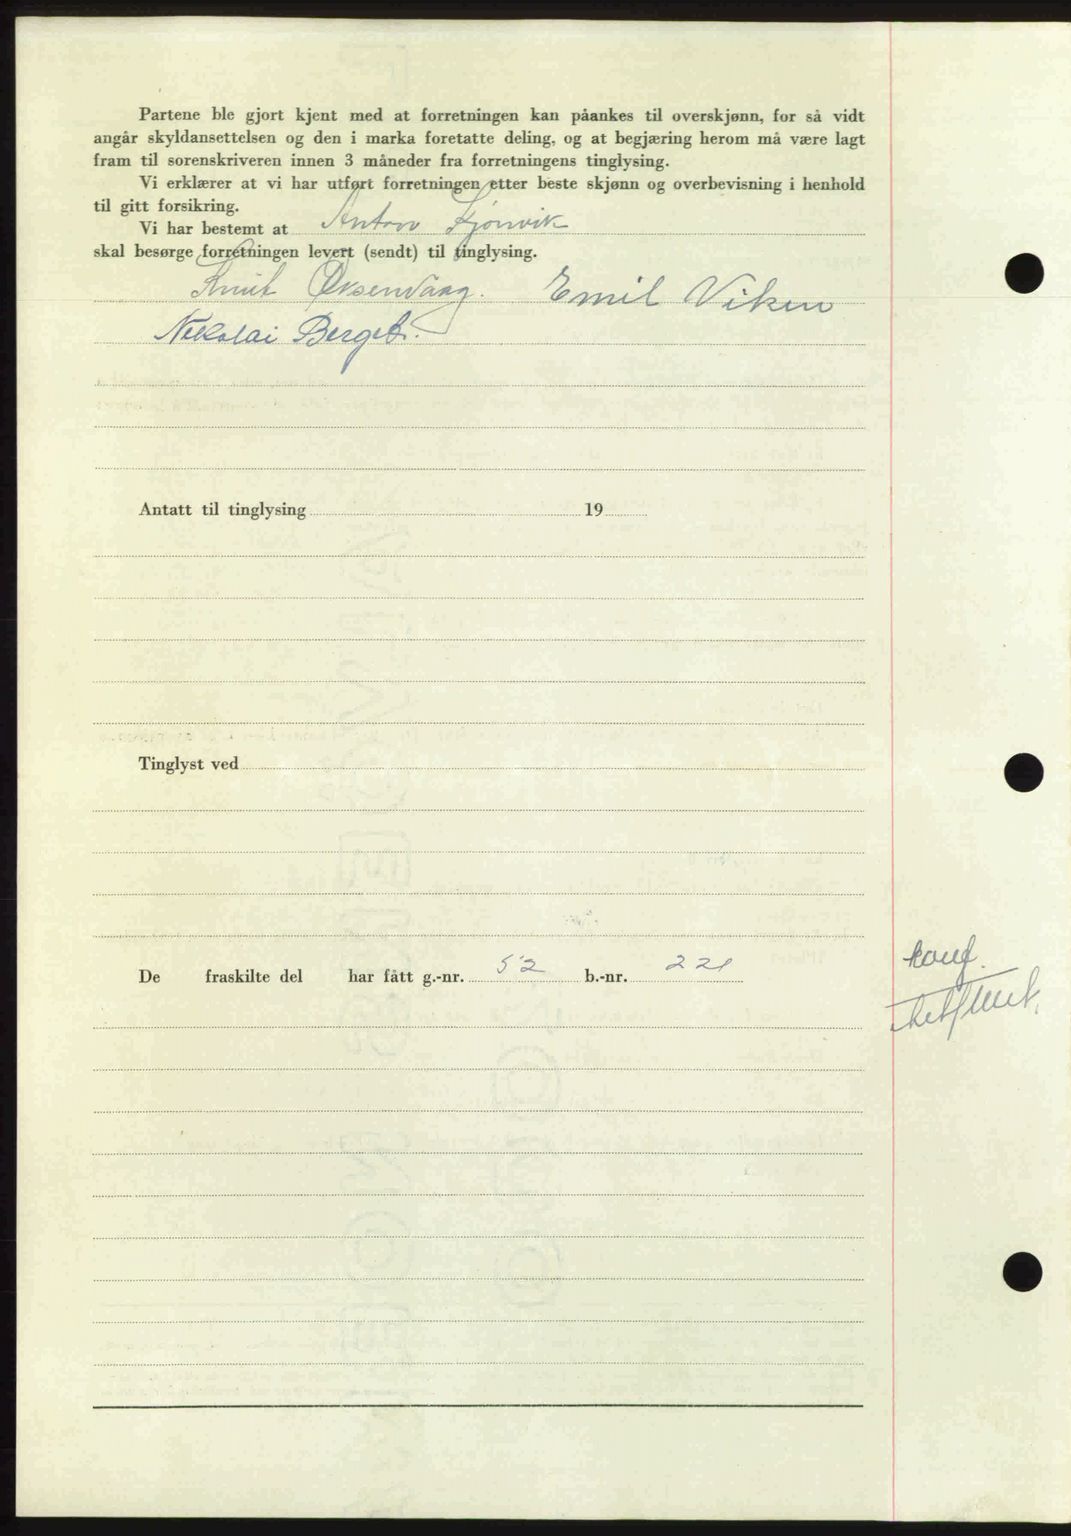 Partene ble gjort kjent med at forretningen kan påankes til overskjønn, for så vidt
angår skyldansettelsen og den i marka foretatte deling, og at begjæring herom må være lagt
fram til sorenskriveren innen 3 måneder fra forretningens tinglysing.
Vi erklærer at vi har utført forretningen etter beste skjønn og overbevisning i henhold
til gitt forsikring.
Vi har bestemt at Anton
skal besørge forretningen levert (sendt) til tinglysing.
Knut Øksenvåag. Emil Viken
Nikolai Berget.
Antatt til tinglysing 19
Tinglyst ved
De fraskilte del har fått g.-nr. 52 b.-nr. 221
konf.